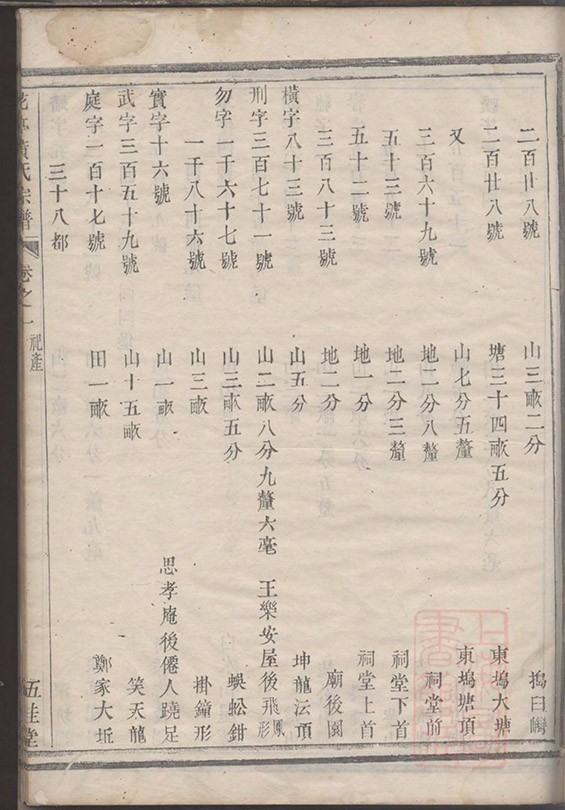 二百廿八號 山三畝二分 搗臼塆
二百廿八號 塘三十四畝五分 東塢大塘
又 山七分五釐 東塢塘頂
三百六十九號 地二分八釐 祠堂前
五十三號 地二分三釐 祠堂下首
五十二號 地一分 祠堂上首
三百八十三號 地二分 廟後園
橫字八十三號 山五分 坤龍沄頂
刑字三百七十一號 山二畝八分九釐六毫 王樂安屋後飛鳳形
勿字一千六十七號 山三畝五分 蜈蚣鉗
一千八十六號 山三畝 掛鐘形
實字十六號 山一畝 思孝庵後僊人蹺足
武字三百五十九號 山十五畝 笑天龍
庭字一百十七號 田一畝 鄭家大坵
三十八都
黃氏宗譜 卷之一 祀產 五桂堂